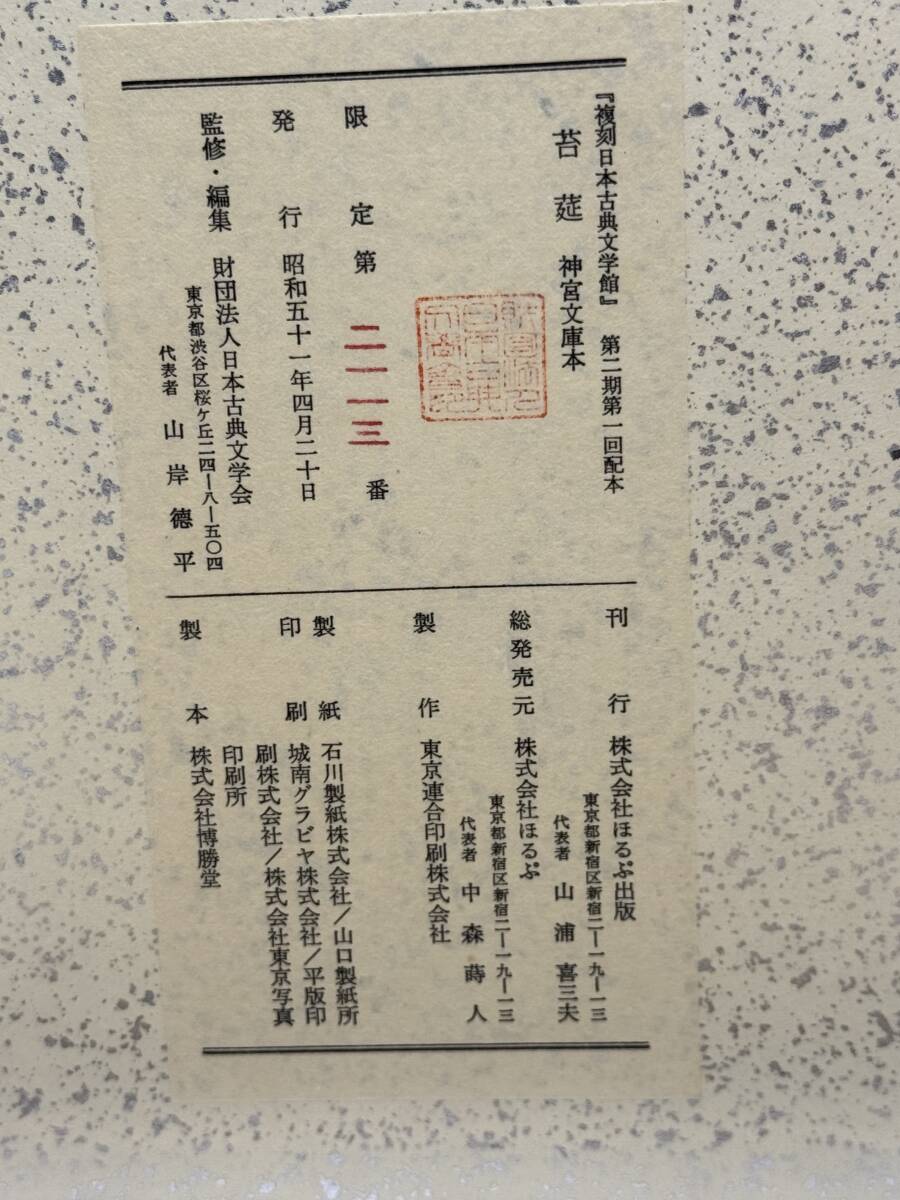 『複刻日本古典文学館』 第二期第一回配本
苔莚 神宮文庫本
限定第 二一一三 番
発行 昭和五十一年四月二十日
監修・編集 財団法人日本古典文学会
東京都渋谷区桜ヶ丘二四ー八ー五〇四
代表者 山岸徳平
刊行 株式会社ほるぷ出版
東京都新宿区新宿二ー一九ー一三
代表者 山浦喜三夫
総発売元 株式会社ほるぷ
東京都新宿区新宿二ー一九ー一三
代表者 中森蒔人
製作 東京連合印刷株式会社
製紙 石川製紙株式会社/山口製紙所
印刷 城南グラビヤ株式会社/平版印
刷株式会社/株式会社東京写真
印刷所
製本 株式会社博勝堂